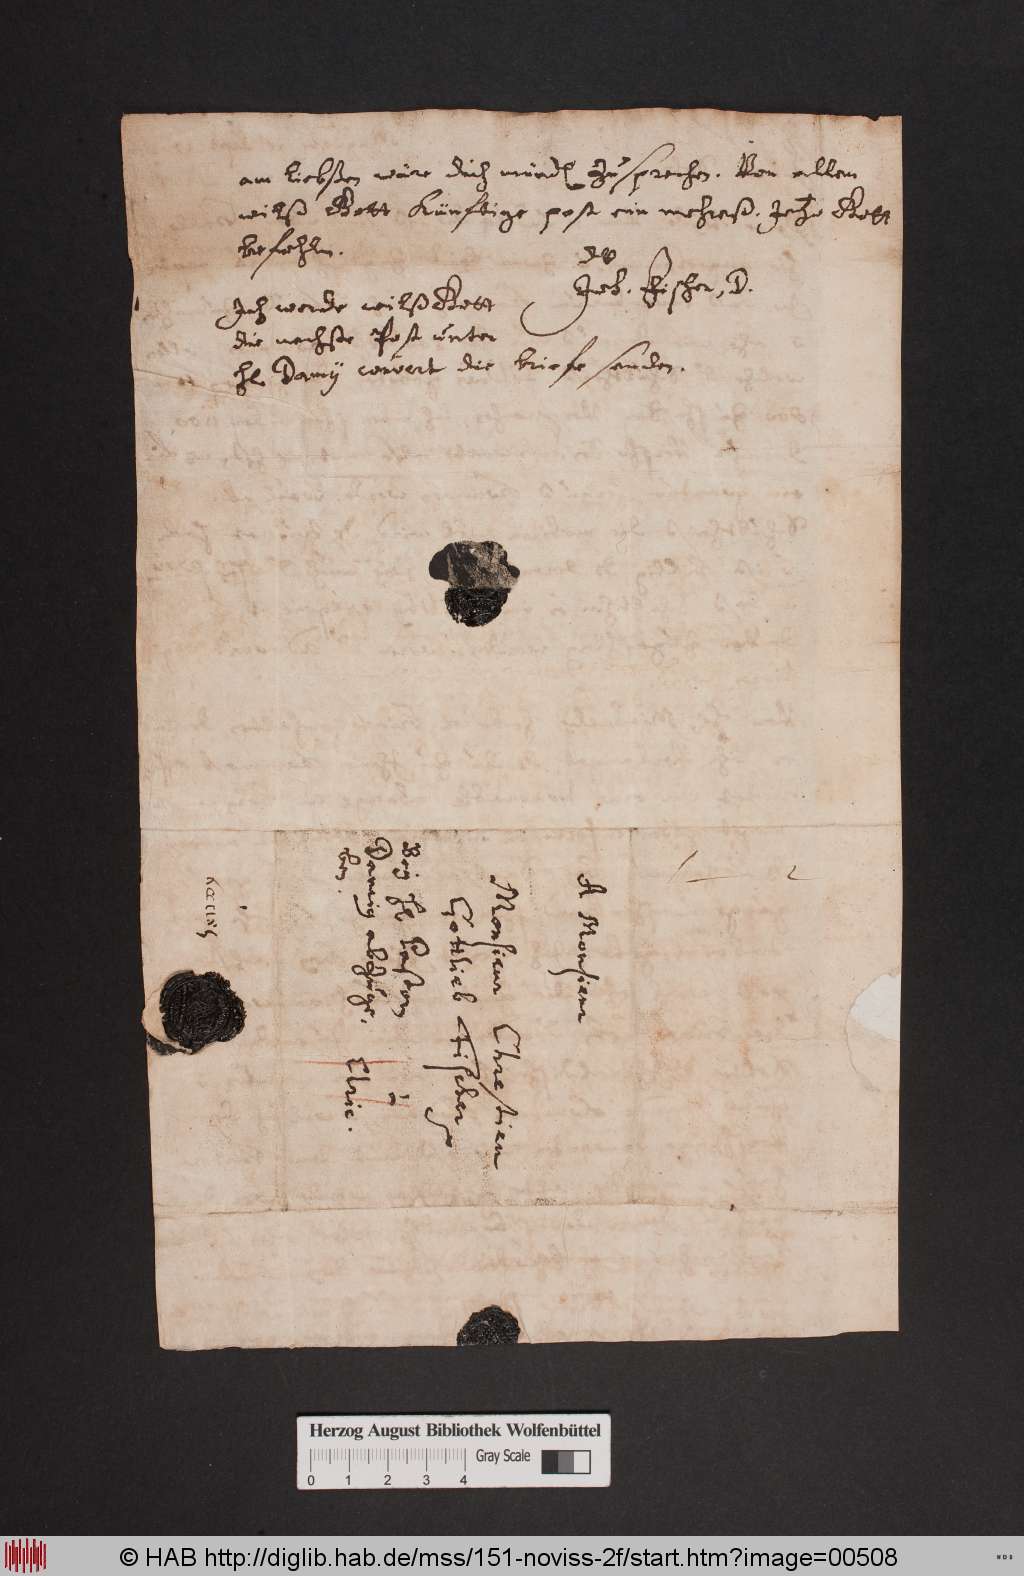 am liebsten wäre dich mündl. zu sprechen. Von allem
wilß Gott Künftige post ein mehreß. Jetzo Gott
befohlen.
Joh. Fischer, D.
Ich werde wilß Gott
die nechste Post unter
H. Damij couvert die briefe senden.
A Monsieur
Monsieur Chrestien
Gottlieb Fischer
Beÿ H. Pastor
Damig abzuge-
ben.
à
Herzog August Bibliothek Wolfenbüttel
Gray Scale
0 1 2 3 4
© HAB http://diglib.hab.de/mss/151-noviss-2f/start.htm?image=00508